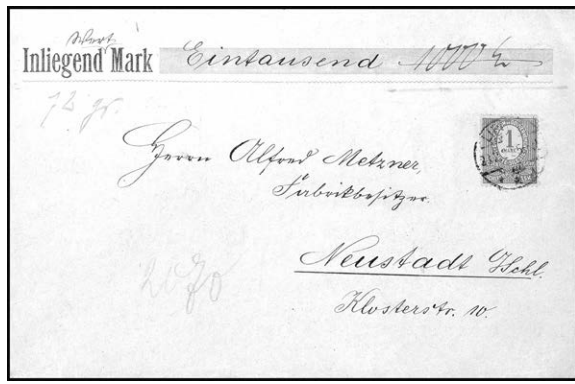 Wert
Inliegend Mark Eintausend 1000 M
72 gr.
1
Herrn Alfred Metzner,
Fabrikbesitzer
Neustadt O/Schl.
Klosterstr. 10.
2070